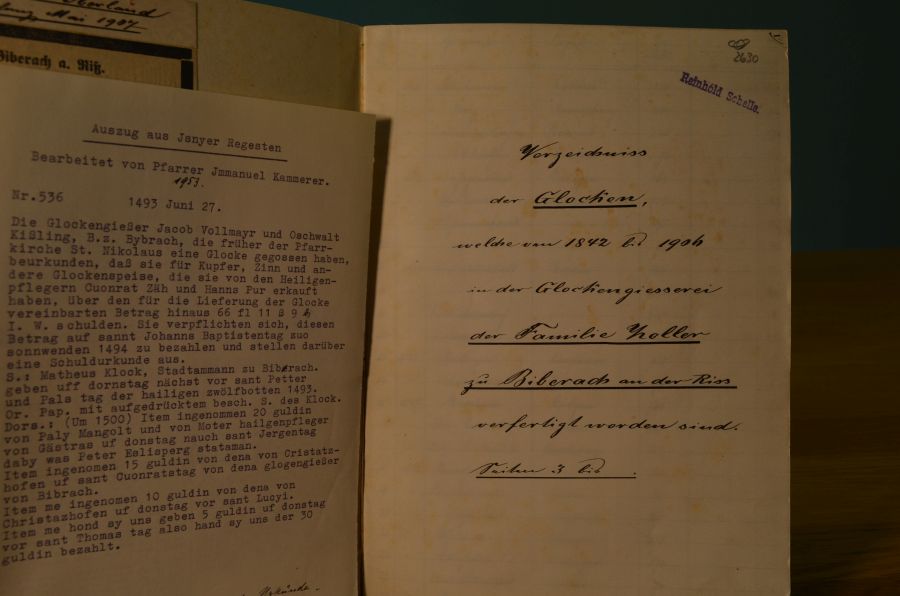 Oberland
Mai 1907
Biberach a. Riß.
Auszug aus Jsnyer Regesten
Bearbeitet von Pfarrer Jmmanuel Kammerer.
1953.
Nr.536 1493 Juni 27.
Die Glockengießer Jacob Vollmayr und Oschwalt
Kißling, B.z. Bybrach, die früher der Pfarr-
kirche St. Nikolaus eine Glocke gegossen haben,
beurkunden, daß sie für Kupfer, Zinn und an-
dere Glockenspeise, die sie von den Heiligen-
pflegern Cuonrat Zäh und Hanns Pur erkauft
haben, über den für die Lieferung der Glocke
vereinbarten Betrag hinaus 66 fl 11 ß 9 h
I. W. schulden. Sie verpflichten sich, diesen
Betrag auf sannt Johanns Baptistentag zuo
sonnwenden 1494 zu bezahlen und stellen darüber
eine Schuldurkunde aus.
S.: Matheus Klock, Stadtammann zu Biberach.
geben uff dornstag nächst vor sant Petter
und Pals tag der hailigen zwölfbotten 1493.
Or. Pap. mit aufgedrücktem besch. S. des Klock.
Dors.: (Um 1500) Item ingenommen 20 guldin
von Paly Mangolt und von Moter hailgenpfleger
von Gästras uf donstag nauch sant Jergentag
daby was Peter Eslisperg stataman.
Item ingenomen 15 guldin von dena von Cristatz-
hofen uf sant Cuonratstag von dena glogengießer
von Bibrach.
Item me ingenomen 10 guldin von dena von
Christazhofen uf donstag vor sant Lucyi.
Item me hond sy uns geben 5 guldin uf donstag
vor sant Thomas tag also hand sy uns der 30
guldin bezahlt.
2630
Reinhold Schelle.
Verzeichniss
der Glocken,
welche von 1842 bis 1904
in der Glockengiesserei
der Familie Zoller
zu Biberach an der Riss
verfertigt worden sind.
Seiten 3 bis .